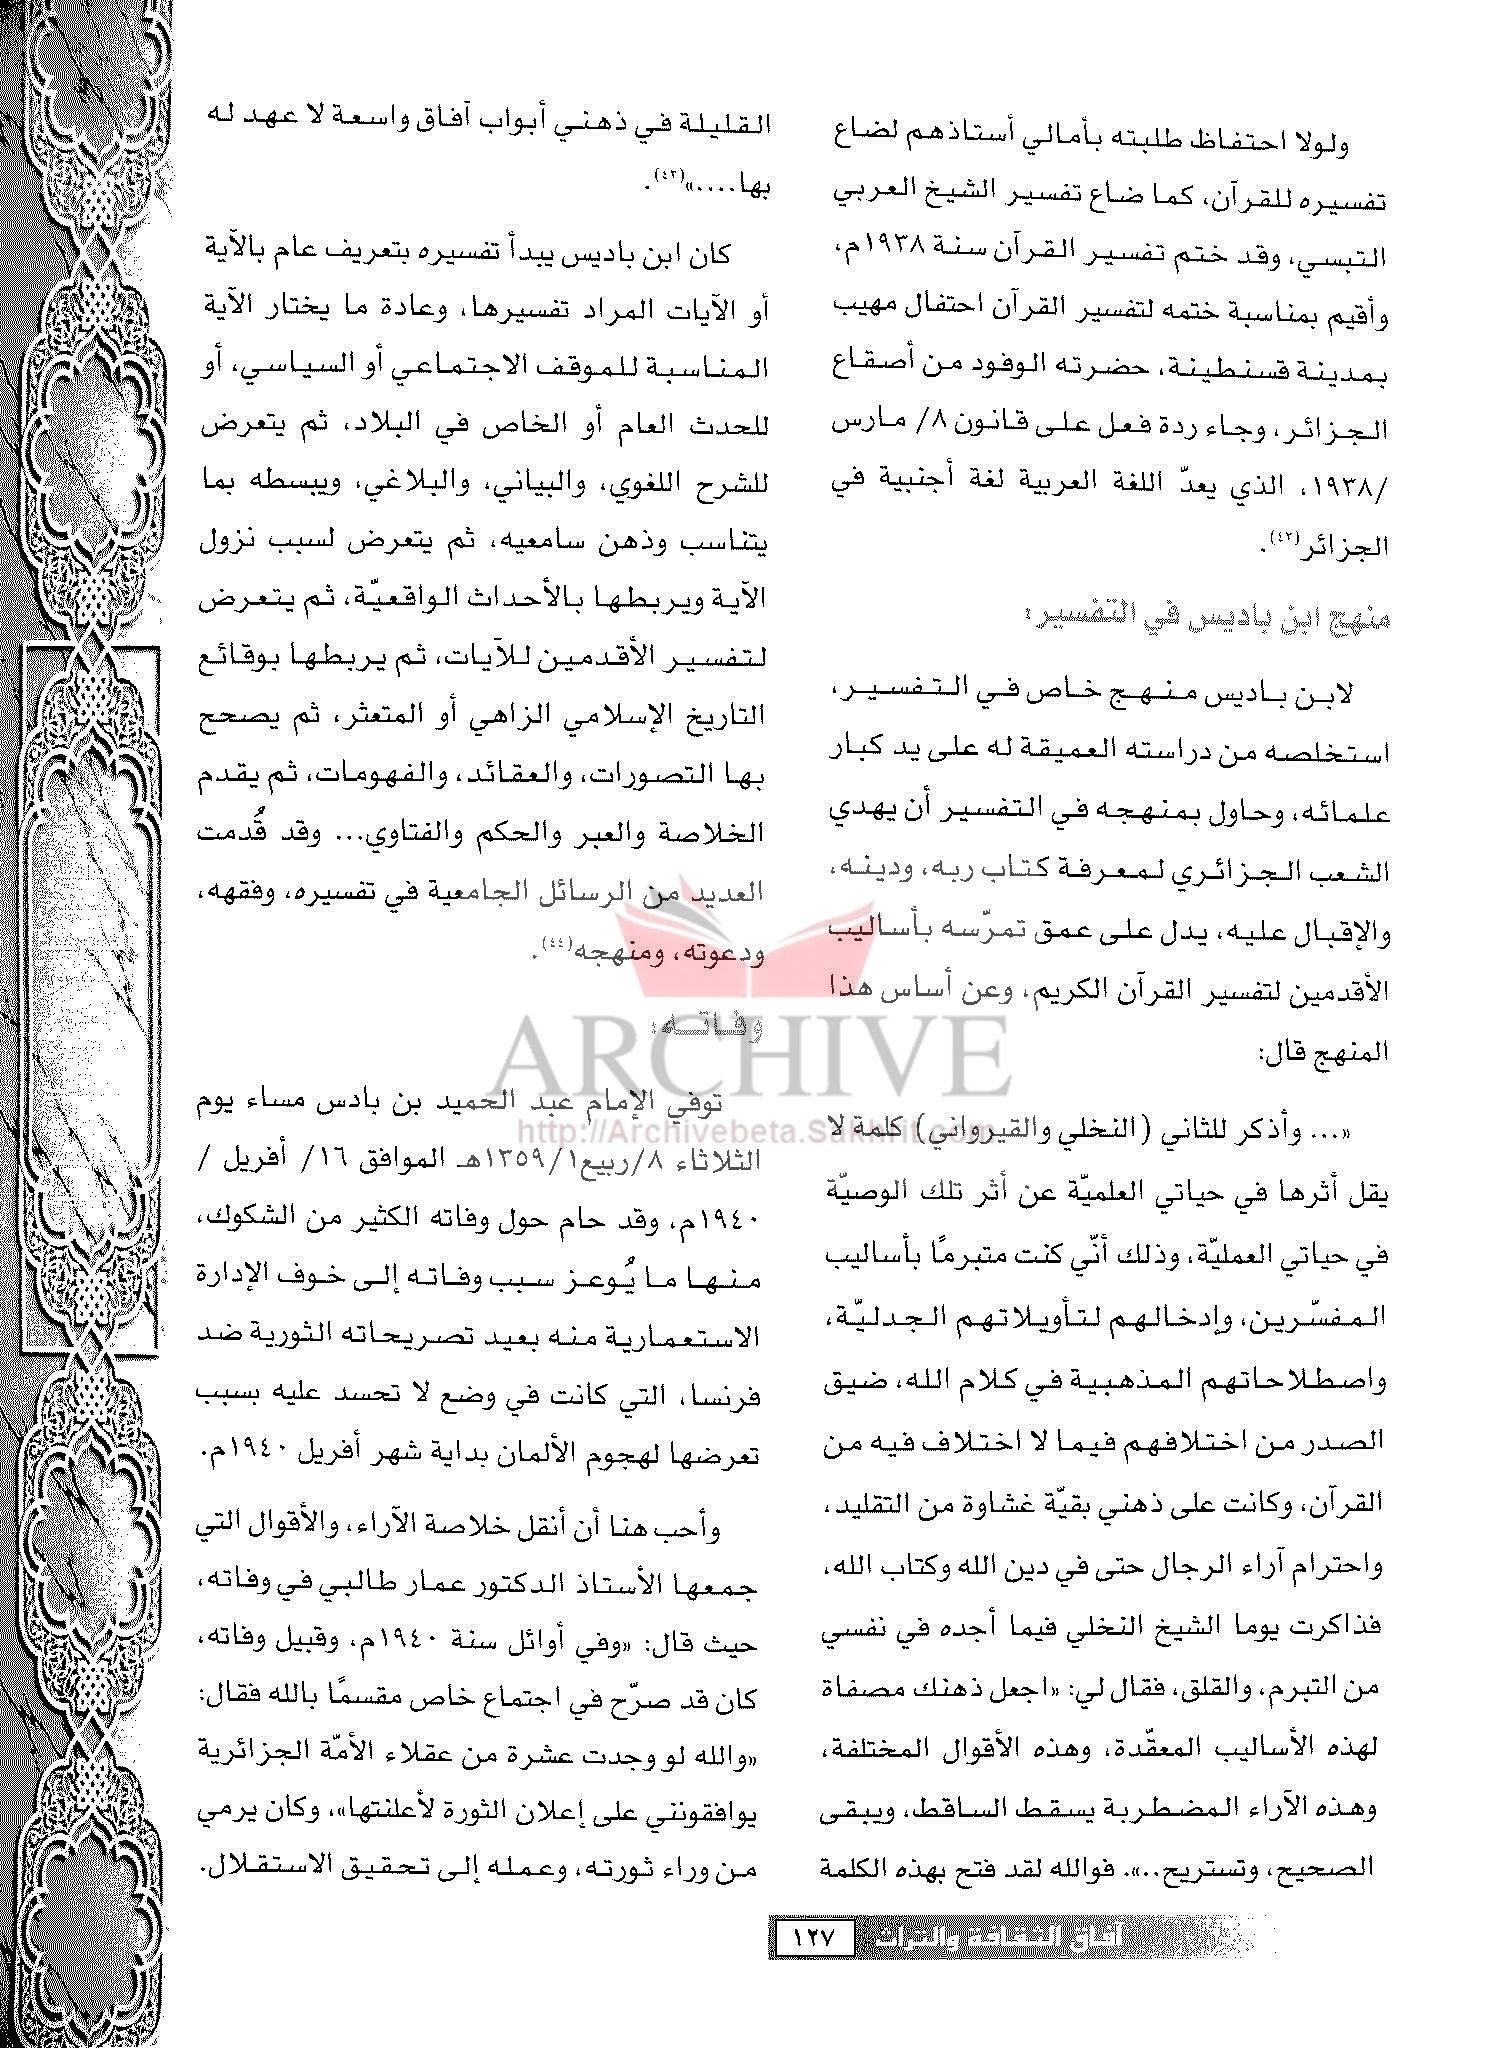 ولولا احتفاظ طلبته بأمالي أستاذهم لضاع
تفسيره للقرآن، كما ضاع تفسير الشيخ العربي
التبسي، وقد ختم تفسير القرآن سنة ١٩٣٨م،
وأقيم بمناسبة ختمه لتفسير القرآن احتفال مهيب
بمدينة قسنطينة، حضرته الوفود من أصقاع
الجزائر، وجاء ردة فعل على قانون ٨/ مارس
/١٩٣٨، الذي يعدّ اللغة العربية لغة أجنبية في
الجزائر(٤٢).
منهج ابن باديس في التفسير:
لابن باديس منهج خاص في التفسير،
استخلصه من دراسته العميقة له على يد كبار
علمائه، وحاول بمنهجه في التفسير أن يهدي
الشعب الجزائري لمعرفة كتاب ربه، ودينه،
والإقبال عليه، يدل على عمق تمرّسه بأساليب
الأقدمين لتفسير القرآن الكريم، وعن أساس هذا
المنهج قال:
«... وأذكر للثاني (النخلي والقيرواني) كلمة لا
يقل أثرها في حياتي العلميّة عن أثر تلك الوصيّة
في حياتي العمليّة، وذلك أنّي كنت متبرمًا بأساليب
المفسّرين، وإدخالهم لتأويلاتهم الجدليّة،
واصطلاحاتهم المذهبية في كلام الله، ضيق
الصدر من اختلافهم فيما لا اختلاف فيه من
القرآن، وكانت على ذهني بقيّة غشاوة من التقليد،
واحترام آراء الرجال حتى في دين الله وكتاب الله،
فذاكرت يوما الشيخ النخلي فيما أجده في نفسي
من التبرم، والقلق، فقال لي: «اجعل ذهنك مصفاة
لهذه الأساليب المعقّدة، وهذه الأقوال المختلفة،
وهذه الآراء المضطربة يسقط الساقط، ويبقى
الصحيح، وتستريح..». فوالله لقد فتح بهذه الكلمة
القليلة في ذهني أبواب آفاق واسعة لا عهد له
بها....»(٤٣).
كان ابن باديس يبدأ تفسيره بتعريف عام بالآية
أو الآيات المراد تفسيرها، وعادة ما يختار الآية
المناسبة للموقف الاجتماعي أو السياسي، أو
للحدث العام أو الخاص في البلاد، ثم يتعرض
للشرح اللغوي، والبياني، والبلاغي، ويبسطه بما
يتناسب وذهن سامعيه، ثم يتعرض لسبب نزول
الآية ويربطها بالأحداث الواقعيّة، ثم يتعرض
لتفسير الأقدمين للآيات، ثم يربطها بوقائع
التاريخ الإسلامي الزاهي أو المتعثر، ثم يصحح
بها التصورات، والعقائد، والفهومات، ثم يقدم
الخلاصة والعبر والحكم والفتاوي... وقد قُدمت
العديد من الرسائل الجامعية في تفسيره، وفقهه،
ودعوته، ومنهجه(٤٤).
وفاته:
توفي الإمام عبد الحميد بن بادس مساء يوم
الثلاثاء ٨/ربيع١/١٣٥٩هـ الموافق ١٦/ أفريل /
١٩٤٠م، وقد حام حول وفاته الكثير من الشكوك،
منها ما يُوعز سبب وفاته إلى خوف الإدارة
الاستعمارية منه بعيد تصريحاته الثورية ضد
فرنسا، التي كانت في وضع لا تحسد عليه بسبب
تعرضها لهجوم الألمان بداية شهر أفريل ١٩٤٠م.
وأحب هنا أن أنقل خلاصة الآراء، والأقوال التي
جمعها الأستاذ الدكتور عمار طالبي في وفاته،
حيث قال: «وفي أوائل سنة ١٩٤٠م، وقبيل وفاته،
كان قد صرّح في اجتماع خاص مقسمًا بالله فقال:
«والله لو وجدت عشرة من عقلاء الأمّة الجزائرية
يوافقونني على إعلان الثورة لأعلنتها»، وكان يرمي
من وراء ثورته، وعمله إلى تحقيق الاستقلال.
ARCHIVE
آفاق الثقافة والتراث ١٢٧